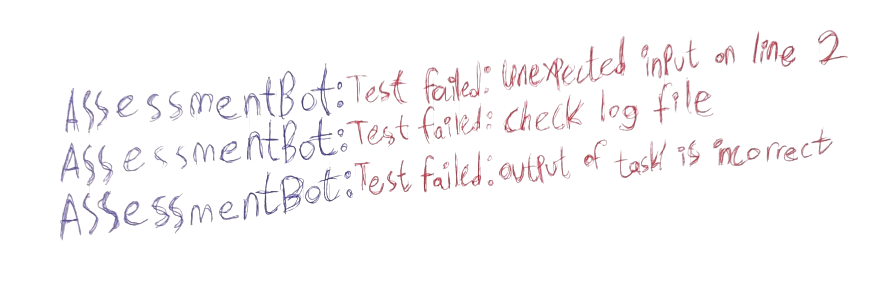 AssessmentBot:Test failed: unexpected input on line 2
AssessmentBot:Test failed: check log file
AssessmentBot:Test failed: output of task1 is incorrect